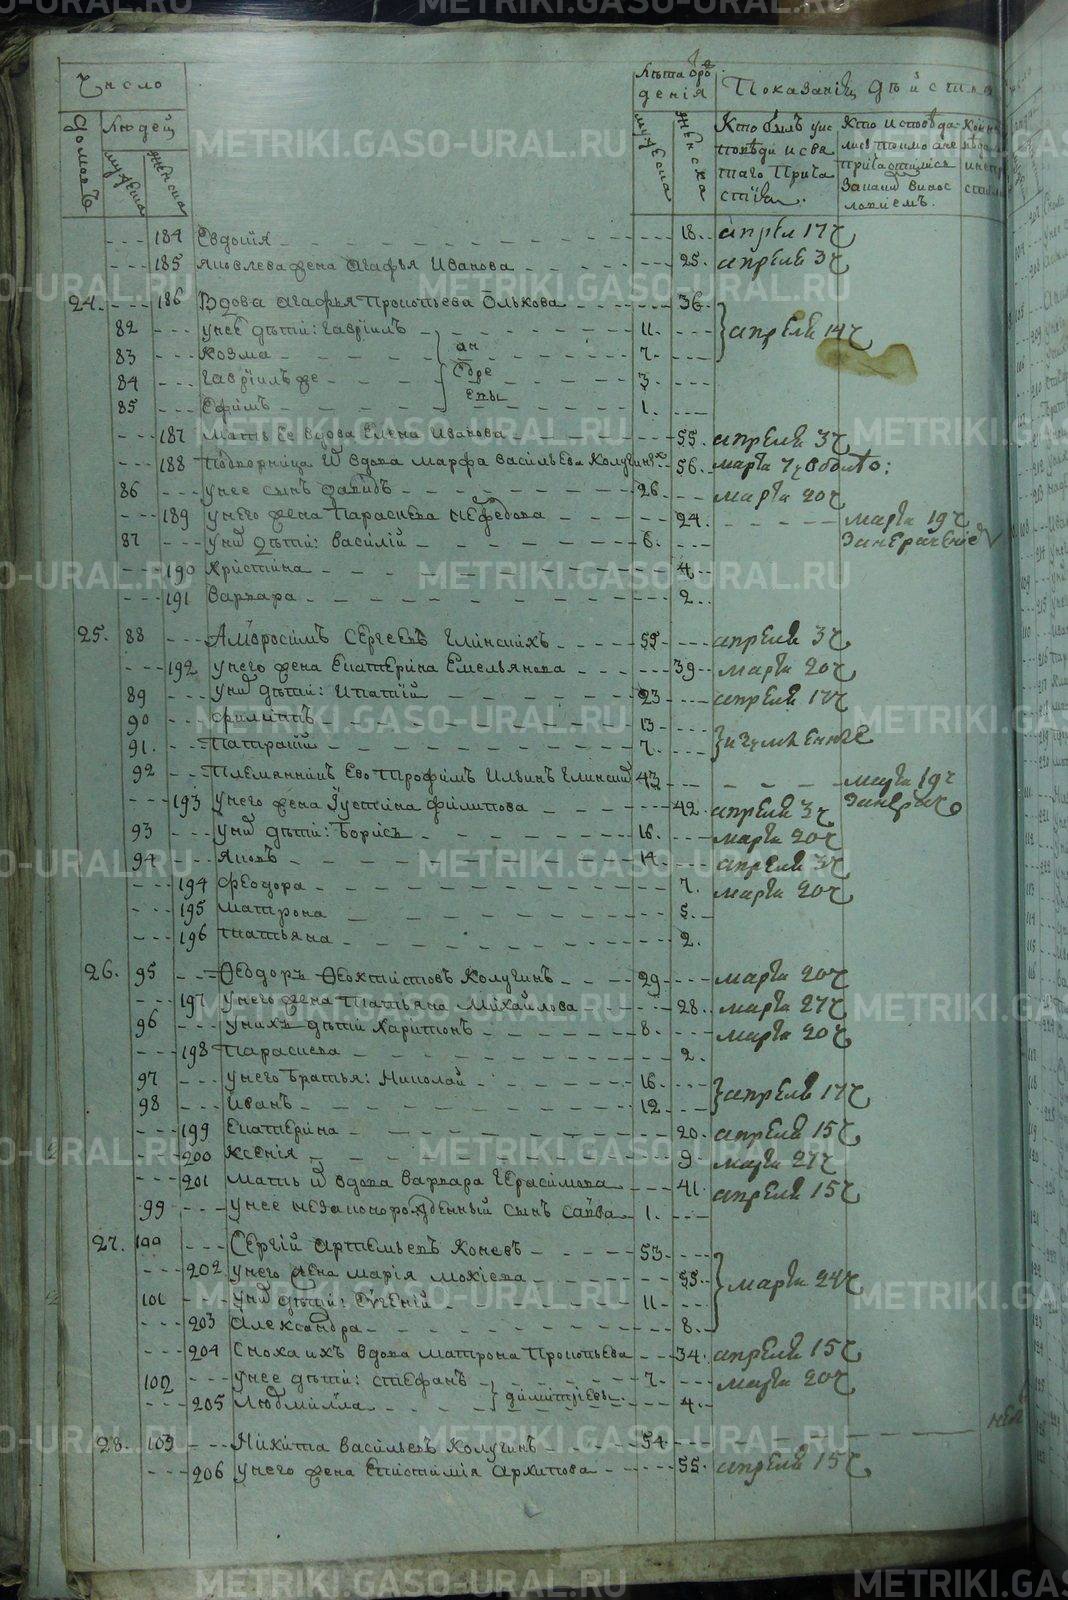 Число
Домовъ
Людей
мужеска
женска
Лѣта рож
денія
мужеска
женска
Показаніи дѣйство
Кто былъ у ис
повѣди и свя
таго прича
стія.
Кто исповѣда
лись токмо а не
причастился
и за какимъ винос
ловіемъ.
184 Евдокія 18. апреля 17 ч
185 Яковлева жена Агафья Иванова 25. апреля 3 ч
24. 186 Вдова Агафья Прокопьева Олькова 36
82 у нее дѣти: Гавріилъ 11. апреля 14 ч
83 Козма 7. ан
84 Гавріилъ же 3. дре
85 Ефимъ 1. евы
187 Мать ее вдова Елена Иванова 55. апреля 3 ч
188 Подворница вдова Марфа Васильева Колугиныхъ 56. марта 7 ч
86 у нее сынъ Давидъ 26 марта 20 ч
189 у него жена Параскева Нефедова 24. марта 19 ч
87 у них дѣти: Василій 6.
190 Христина 4.
191 Варвара 2.
25. 88 Амвросимъ Сергеевъ Глинскихъ 55 апреля 3 ч
192 у него жена Екатерина Емельянова 39 марта 20 ч
89 у них дѣти: Ипатій 23 апреля 17 ч
90 Филиппъ 13
91. Патракій 7.
92 Племянникъ Ево Трофимъ Ильинъ Глинский 43 марта 19 ч
193 у него жена Иустина Филипова 42 апреля 3 ч
93 у них дѣти: Борисъ 16. марта 20 ч
94 Яковъ 14 апреля 3 ч
194 Феодора 7. марта 20 ч
195 Матрона 5.
196 Татьяна 2.
26. 95 Ѳеодоръ Ѳеоктистовъ Колугинъ 29 марта 20 ч
197 у него жена Татьяна Михайлова 28. марта 27 ч
96 у нихъ дѣти Харитонъ 8. марта 20 ч
198 Параскева 2.
97 у него братья: Николай 16
98 Иванъ 12 апреля 17 ч
199 Екатерина 20. апреля 15 ч
200 Ксенія 9. марта 27 ч
201 Мать и вдова Варвара Герасимова 41. апреля 15 ч
99 у нее незаконорожденный сынъ Савва 1.
27. 100 Сергій Артемьевъ Коневъ 53
202 у него жена Марія Мокіева 55. марта 24 ч
101 у них дѣти: Евгеній 11
203 Александра 8.
204 Сноха ихъ вдова Матрона Прокопьева 34. апреля 15 ч
102 у нее дѣти: Стефанъ 7. марта 20 ч
205 Людмилла димитріевы. 4.
28. 103 Никита Васильевъ Колугинъ 54
206 у него жена Епистимія Архипова 55. апреля 15 ч
METRIKI.GASO-URAL.RU